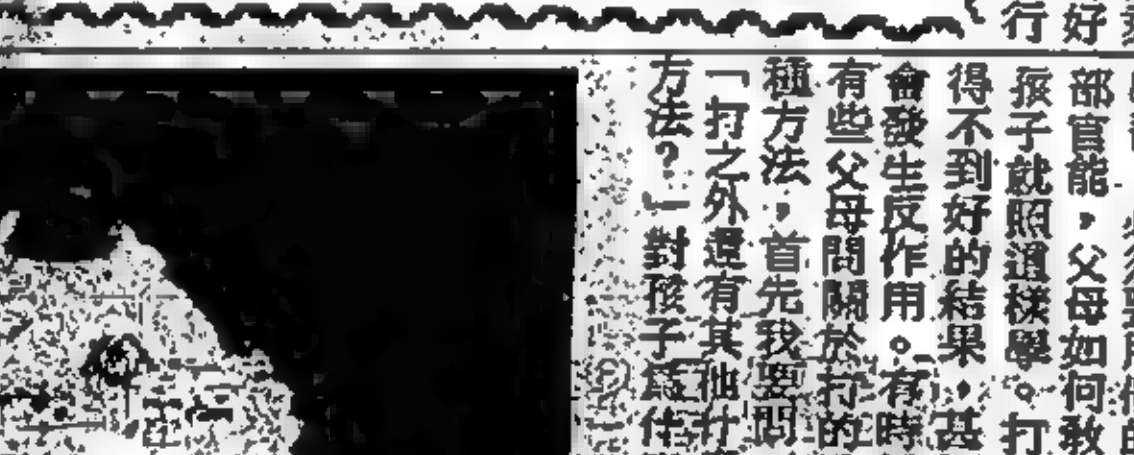 行
好
部官能，父母如何教
孩子就照這樣學。打
得不到好的結果，甚
會發生反作用。有時
有些父母問關於打的
種方法，首先我要問
「打之外還有其他什
方法？」對孩子爲什